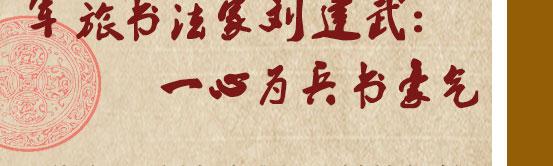 军旅书法家刘建武：
一心为兵书豪气